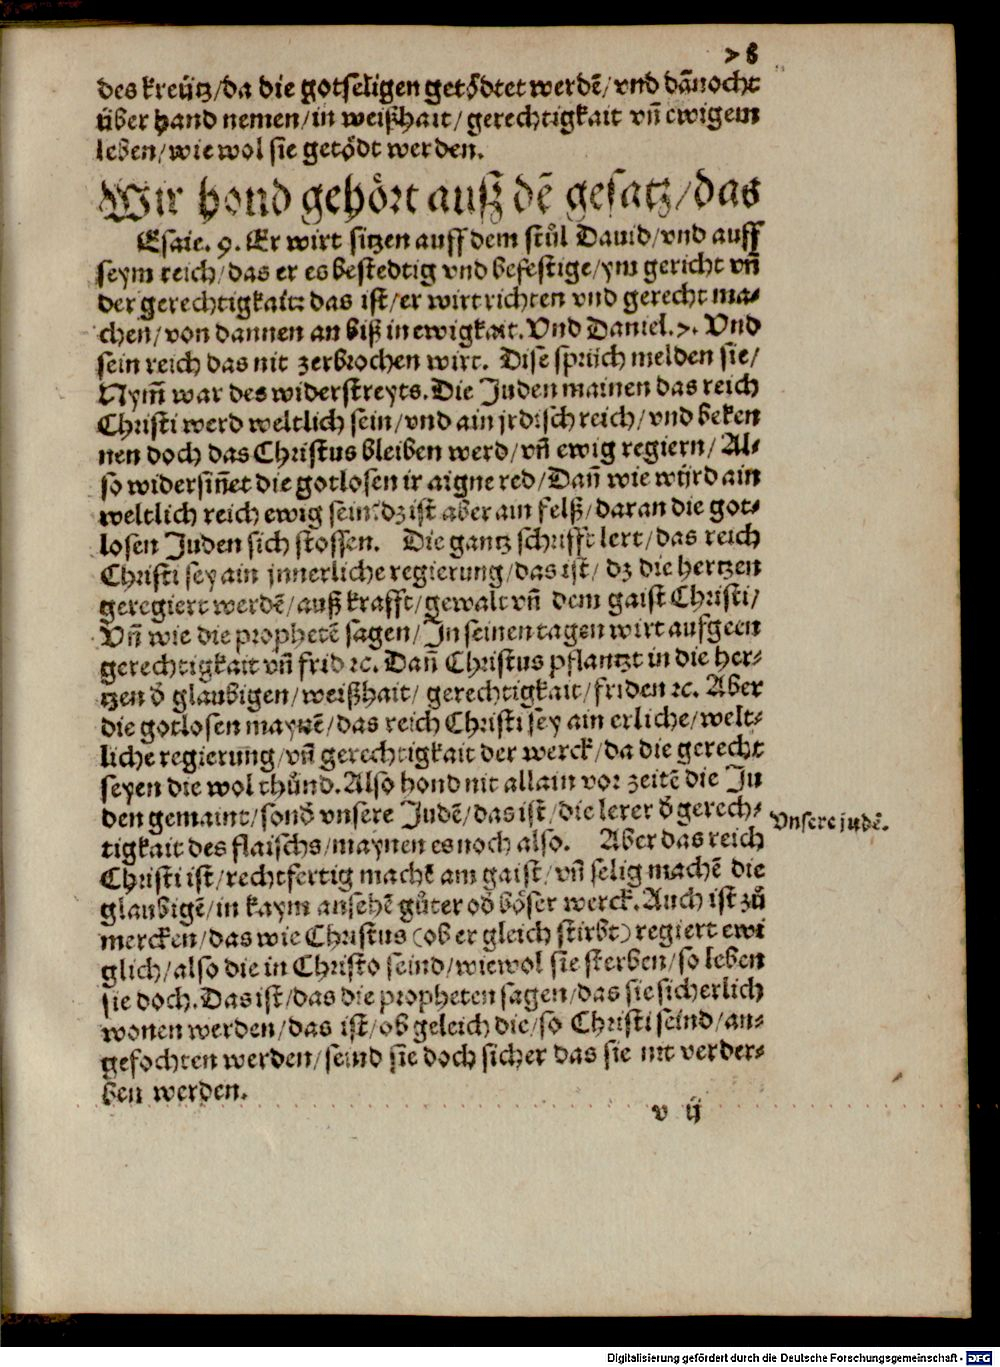 78
des kreütz/da die gotseligen getödtet werdē/vnd dānocht
über hand nemen/in weißhait/gerechtigkait vñ ewigem
leben/wie wol sie getödt werden.
Wir hond gehört außz dē gesatz/das
Esaie. 9. Er wirt sitzen auff dem stůl Dauid/vnd auff
seym reich/das er es bestedtig vnd befestige/ym gericht vñ
der gerechtigkait: das ist/er wirt richten vnd gerecht ma-
chen/von dannen an biß in ewigkait. Vnd Daniel. 7. Vnd
sein reich das nit zerbrochen wirt. Dise sprüch melden sie/
Nym̃ war des widerstreyts. Die Juden mainen das reich
Christi werd weltlich sein/vnd ain jrdisch reich/vnd beken
nen doch das Christus bleiben werd/vñ ewig regiern/Al-
so widersiñet die gotlosen ir aigne red/Dañ wie wijrd ain
weltlich reich ewig sein: dz ist aber ain felß/daran die got-
losen Juden sich stossen. Die gantz schrifft lert/das reich
Christi sey ain jnnerliche regierung/das ist/dz die hertzen
geregiert werdē/auß krafft/gewalt vñ dem gaist Christi/
Vñ wie die prophetē sagen/In seinen tagen wirt aufgeen
gerechtigkait vñ frid ꝛc. Dañ Christus pflantzt in die her-
tzen d̄ glaubigen/weißhait/gerechtigkait/friden ꝛc. Aber
die gotlosen maynē/das reich Christi sey ain erliche/welt-
liche regierung/vñ gerechtigkait der werck/da die gerecht
seyen die wol thůnd. Also hond nit allain vor zeitē die Ju
den gemaint/sond̄ vnsere Judē/das ist/die lerer d̄ gerech-
tigkait des flaischs/maynen es noch also. Aber das reich
Christi ist/rechtfertig machē am gaist/vñ selig machē die
glaubigē/in kaym ansehē gůter od̄ böser werck. Auch ist zů
mercken/das wie Christus (ob er gleich stirbt) regiert ewi
glich/also die in Christo seind/wiewol sie sterben/so leben
sie doch. Das ist/das die propheten sagen/das sie sicherlich
wonen werden/das ist/ob geleich die/so Christi seind/an-
gefochten werden/seind sie doch sicher das sie nit verder-
ben werden.
Vnsere judē.
v ij
Digitalisierung gefördert durch die Deutsche Forschungsgemeinschaft - DFG